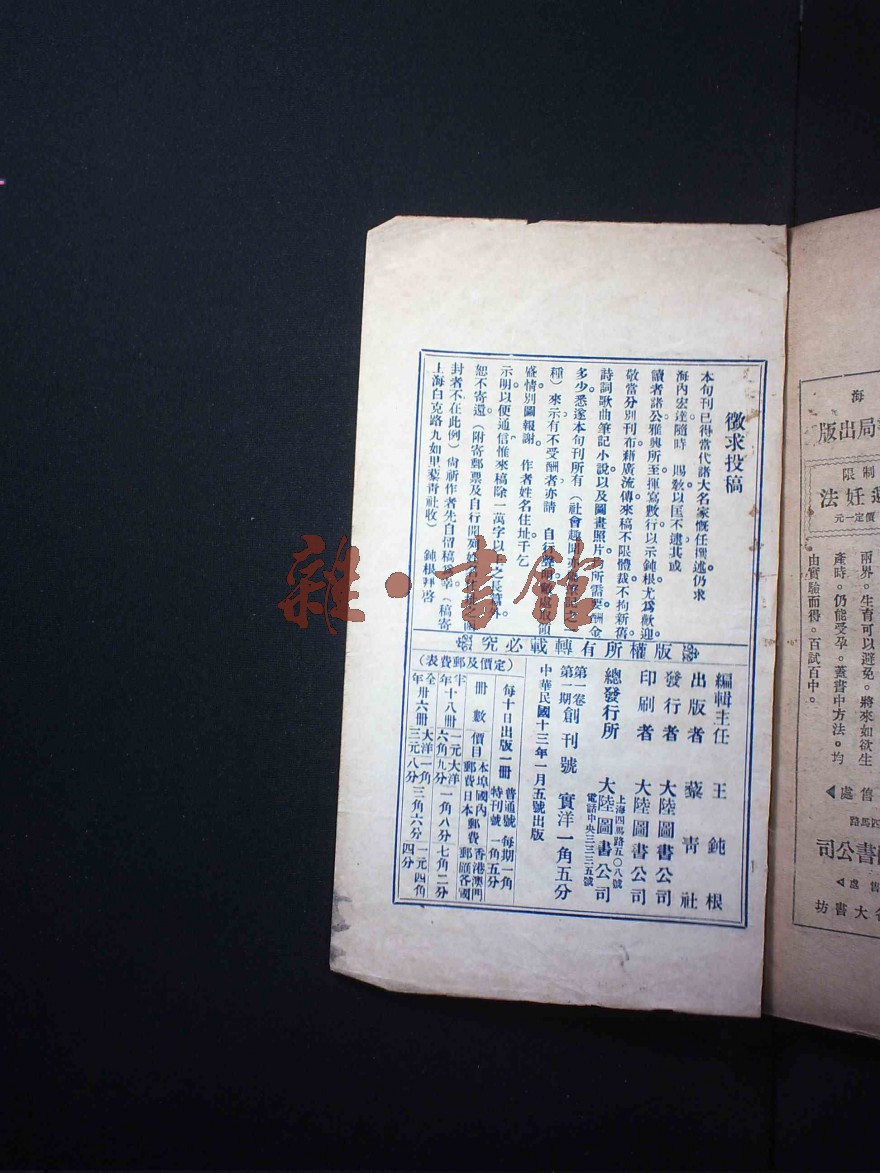 徵求投稿
本旬刊已得當代諸大名家慨任撰述仍求
海內宏達隨時 賜教以匡不逮其或
讀者諸公雅興所至揮寫數行以示鈍根尤為歡迎
敬當分別刊布藉廣流傳來稿不限體裁不拘新舊
詩詞歌曲筆記小說以及圖畫照片均所需要酬金
多少悉遵本旬刊所有（社會趣聞
種）來示有不受酬者亦請 自行
盛情別圖報謝。 作者姓名住址千乞
示明以便通信惟來稿除一萬字以上之長篇外
恕不寄還（附寄郵票及自行開列姓名住址之函
封者不在此例）尚祈作者先自留稿為幸（稿寄
上海白克路九如里藜青社收） 鈍根拜啓
版權所有轉載必究
編輯主任 王鈍根
出版者 藜青社
發行者 大陸圖書公司
印刷者 大陸圖書公司
總發行所 大陸圖書公司
上海四馬路五〇八號
電話中央三三三五號
第一卷
第一期
創刊號 實洋一角五分
中華民國十三年一月五號出版
（定價及郵費表）
每十日出版一冊 普通號 每期一角
特刊號 一角五分
冊數 價目 本埠國內郵費 日本郵費 香港澳門郵匯各國
半年 十八冊 一元大洋六角九分 一角八分 七角二分
全年 卅六冊 大洋三元一角八分 三角六分 一元四角四分
雜·書館
海
書局出版
制限
妊法
價定一元
兩界。生育可以避免。將來如欲生
產時。仍能受孕。蓋書中方法。均
由實驗而得。百試百中。
售處
四馬路
書公司
售處
各大書坊